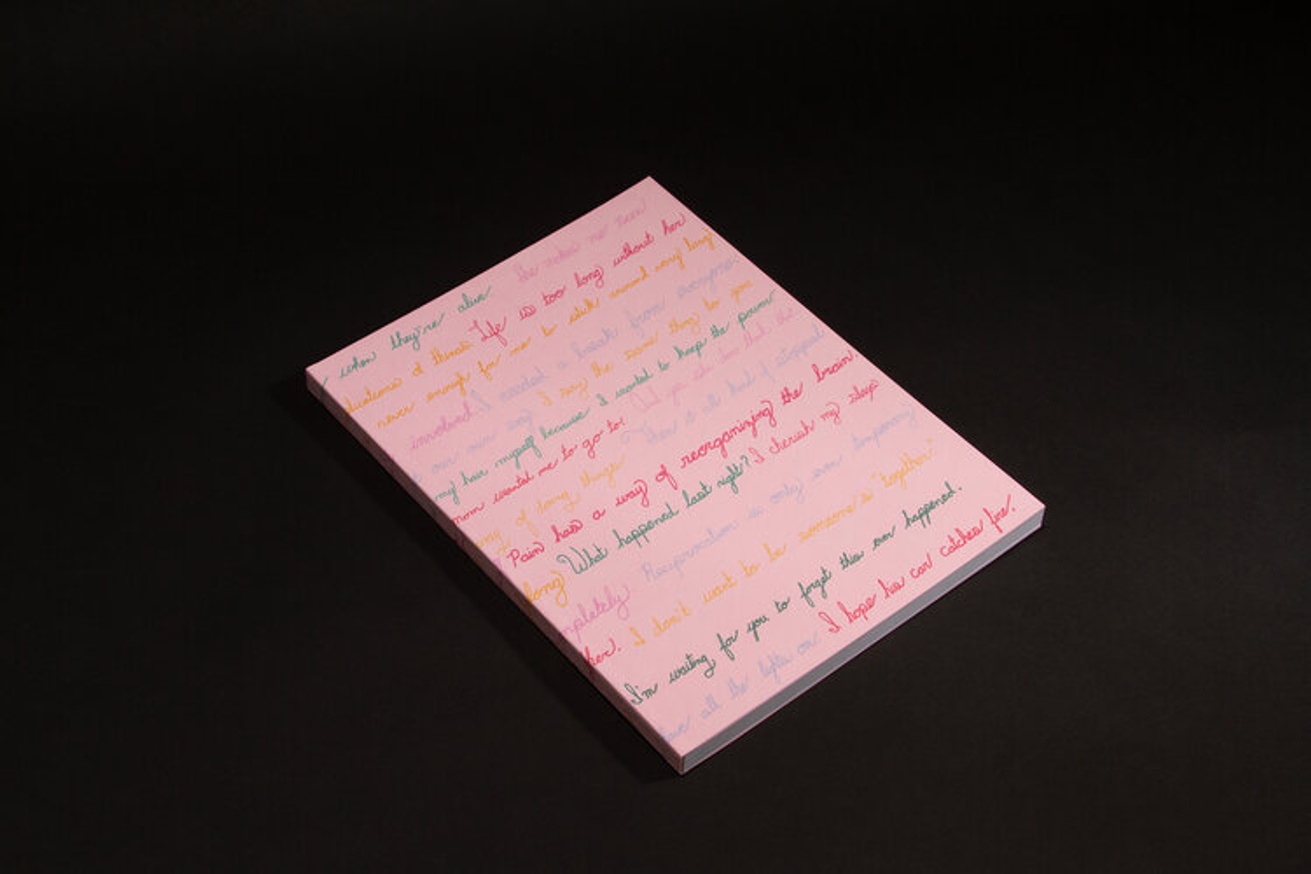 when they're alive. the
of things. Life is too long without her
never enough for me to stick around very long
involved. I needed a break from everyone.
our own way. I say the same thing to you
my hair myself because I wanted to keep the power
mom wanted me to go to! Did you
way of doing things. kind of stopped.
Pain has a way of reorganizing the brain.
long) What happened last night? I cherish my sleep
mpletely Reciprocation is only ever temporary
her. I don't want to be someone's "together"
I'm waiting for you to forget this ever happened.
all the lights on I hope his car catches fire.